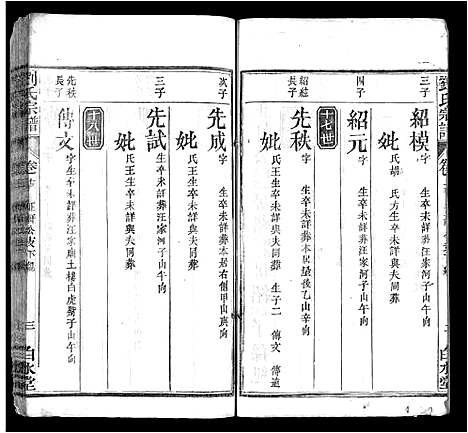 三子
紹模
字 生卒未詳葬汪家河子山午向
妣
氏胡 氏方生卒未詳與夫同葬
四子
紹元
字 生卒未詳葬汪家河子山午向
妣
氏王生卒未詳與夫同葬
十七世
紹 長子
先秩
字 生卒未詳葬本居屋後乙山辛向
氏王生卒未詳與夫同葬 生子二 傳文 傳道
次子
先成
字 生卒未詳葬本居右側甲山庚向
妣
氏王生卒未詳與夫同葬
三子
先試
字生卒未詳葬汪家河子山午向
妣
氏王生卒未詳與夫同葬
十八世
先秩長子
傳文
字生卒未詳葬汪家廟土樓白虎 子山午向
劉氏宗譜
卷
三
白水堂